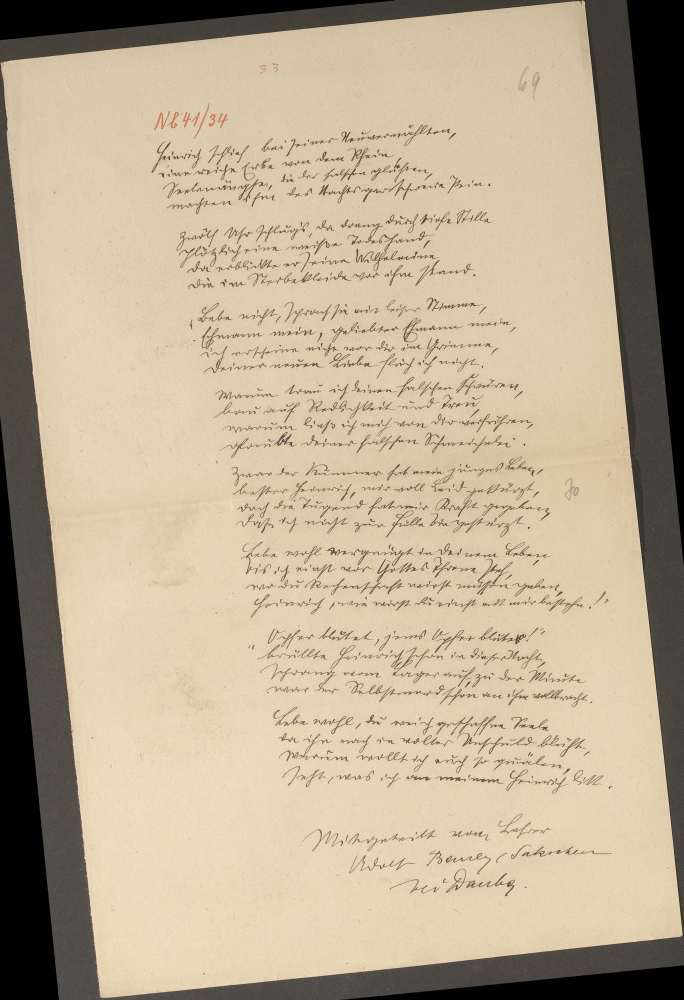 33
69
NB 41/34
Heinrich schlief bei seiner Neuvermählten,
eine reiche Erbe von dem Rhein,
die der falschen
machten ihm des Nachts Pein.
Zwölf Uhr schlug's, da drang durch tiefe Stille
plötzlich eine weiße Todeshand,
da erblickte er seine Wilhelmine,
die im Sterbekleide vor ihm stand.
"Bebe nicht, sprach sie mit leiser Stimme,
Ehmann mein, geliebter Ehmann mein,
ich erscheine nicht vor dir im Grimme,
deiner neuen Liebe fluch ich nicht.
Warum trau ich deinen falschen Schwüren,
bau auf Redlichkeit und Treu,
warum ließ ich mich von dir verführen,
glaubte deiner falschen Schmeichelei.
Zwar der Kummer hat mein junges Leben,
bester Heinrich, mir voll Leid gekürzt,
doch die Tugend hat mir Kraft gegeben,
daß ich nicht zur Hölle bin gestürzt.
70
Lebe wohl vergnügt in deinem Leben,
bis ich einst vor Gottes Throne steh,
wo du Rechenschaft wirst müssen geben,
Heinrich, wie wirst du einst mit mir bestehn.!"
"Opfer blutet, jenes Opfer blutet!"
brüllte Heinrich schon in dieser Nacht,
sprang vom Lager auf, zu der Minute
war der Selbstmord schon an ihm vollbracht.
Lebe wohl, du weich geschaffne Seele
da ihr noch in voller Unschuld blüht,
warum wollt ich euch so quälen,
seht, was ich an meinem Heinrich litt.
Mitgeteilt vom Lehrer
Adolf
bei Dauba.